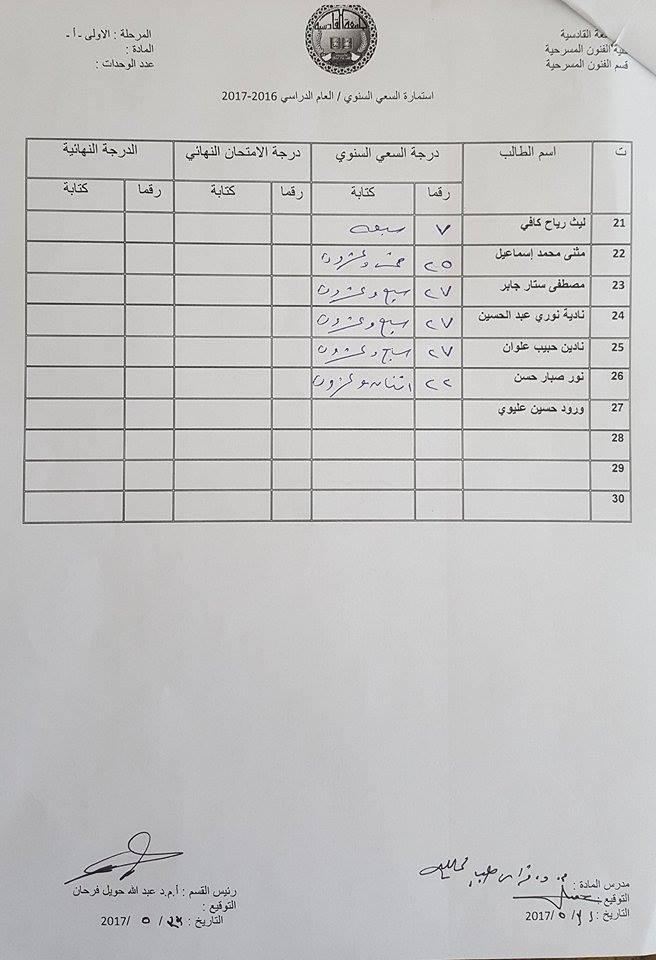 قسم الفنون المسرحية
جامعة القادسية
المرحلة : الاولى - أ -
المادة :
عدد الوحدات :
استمارة السعي السنوي / العام الدراسي 2016-2017
ت اسم الطالب درجة السعي السنوي درجة الامتحان النهائي الدرجة النهائية
رقما كتابة رقما كتابة رقما كتابة
21 ليث رياح كافي ٧ سبعة
22 مثنى محمد إسماعيل ٢٥ خمس وعشرون
23 مصطفى ستار جابر ٢٧ سبع وعشرون
24 نادية نوري عبد الحسين ٢٧ سبع وعشرون
25 نادين حبيب علوان ٢٧ سبع وعشرون
26 نور صبار حسن ٢٢ اثنان وعشرون
27 ورود حسين عليوي
28
29
30
مدرس المادة :
التوقيع :
التاريخ : / ٥ /2017
رئيس القسم : أ.م.د عبد الله حويل فرحان
التوقيع :
التاريخ : / ٥ /2017